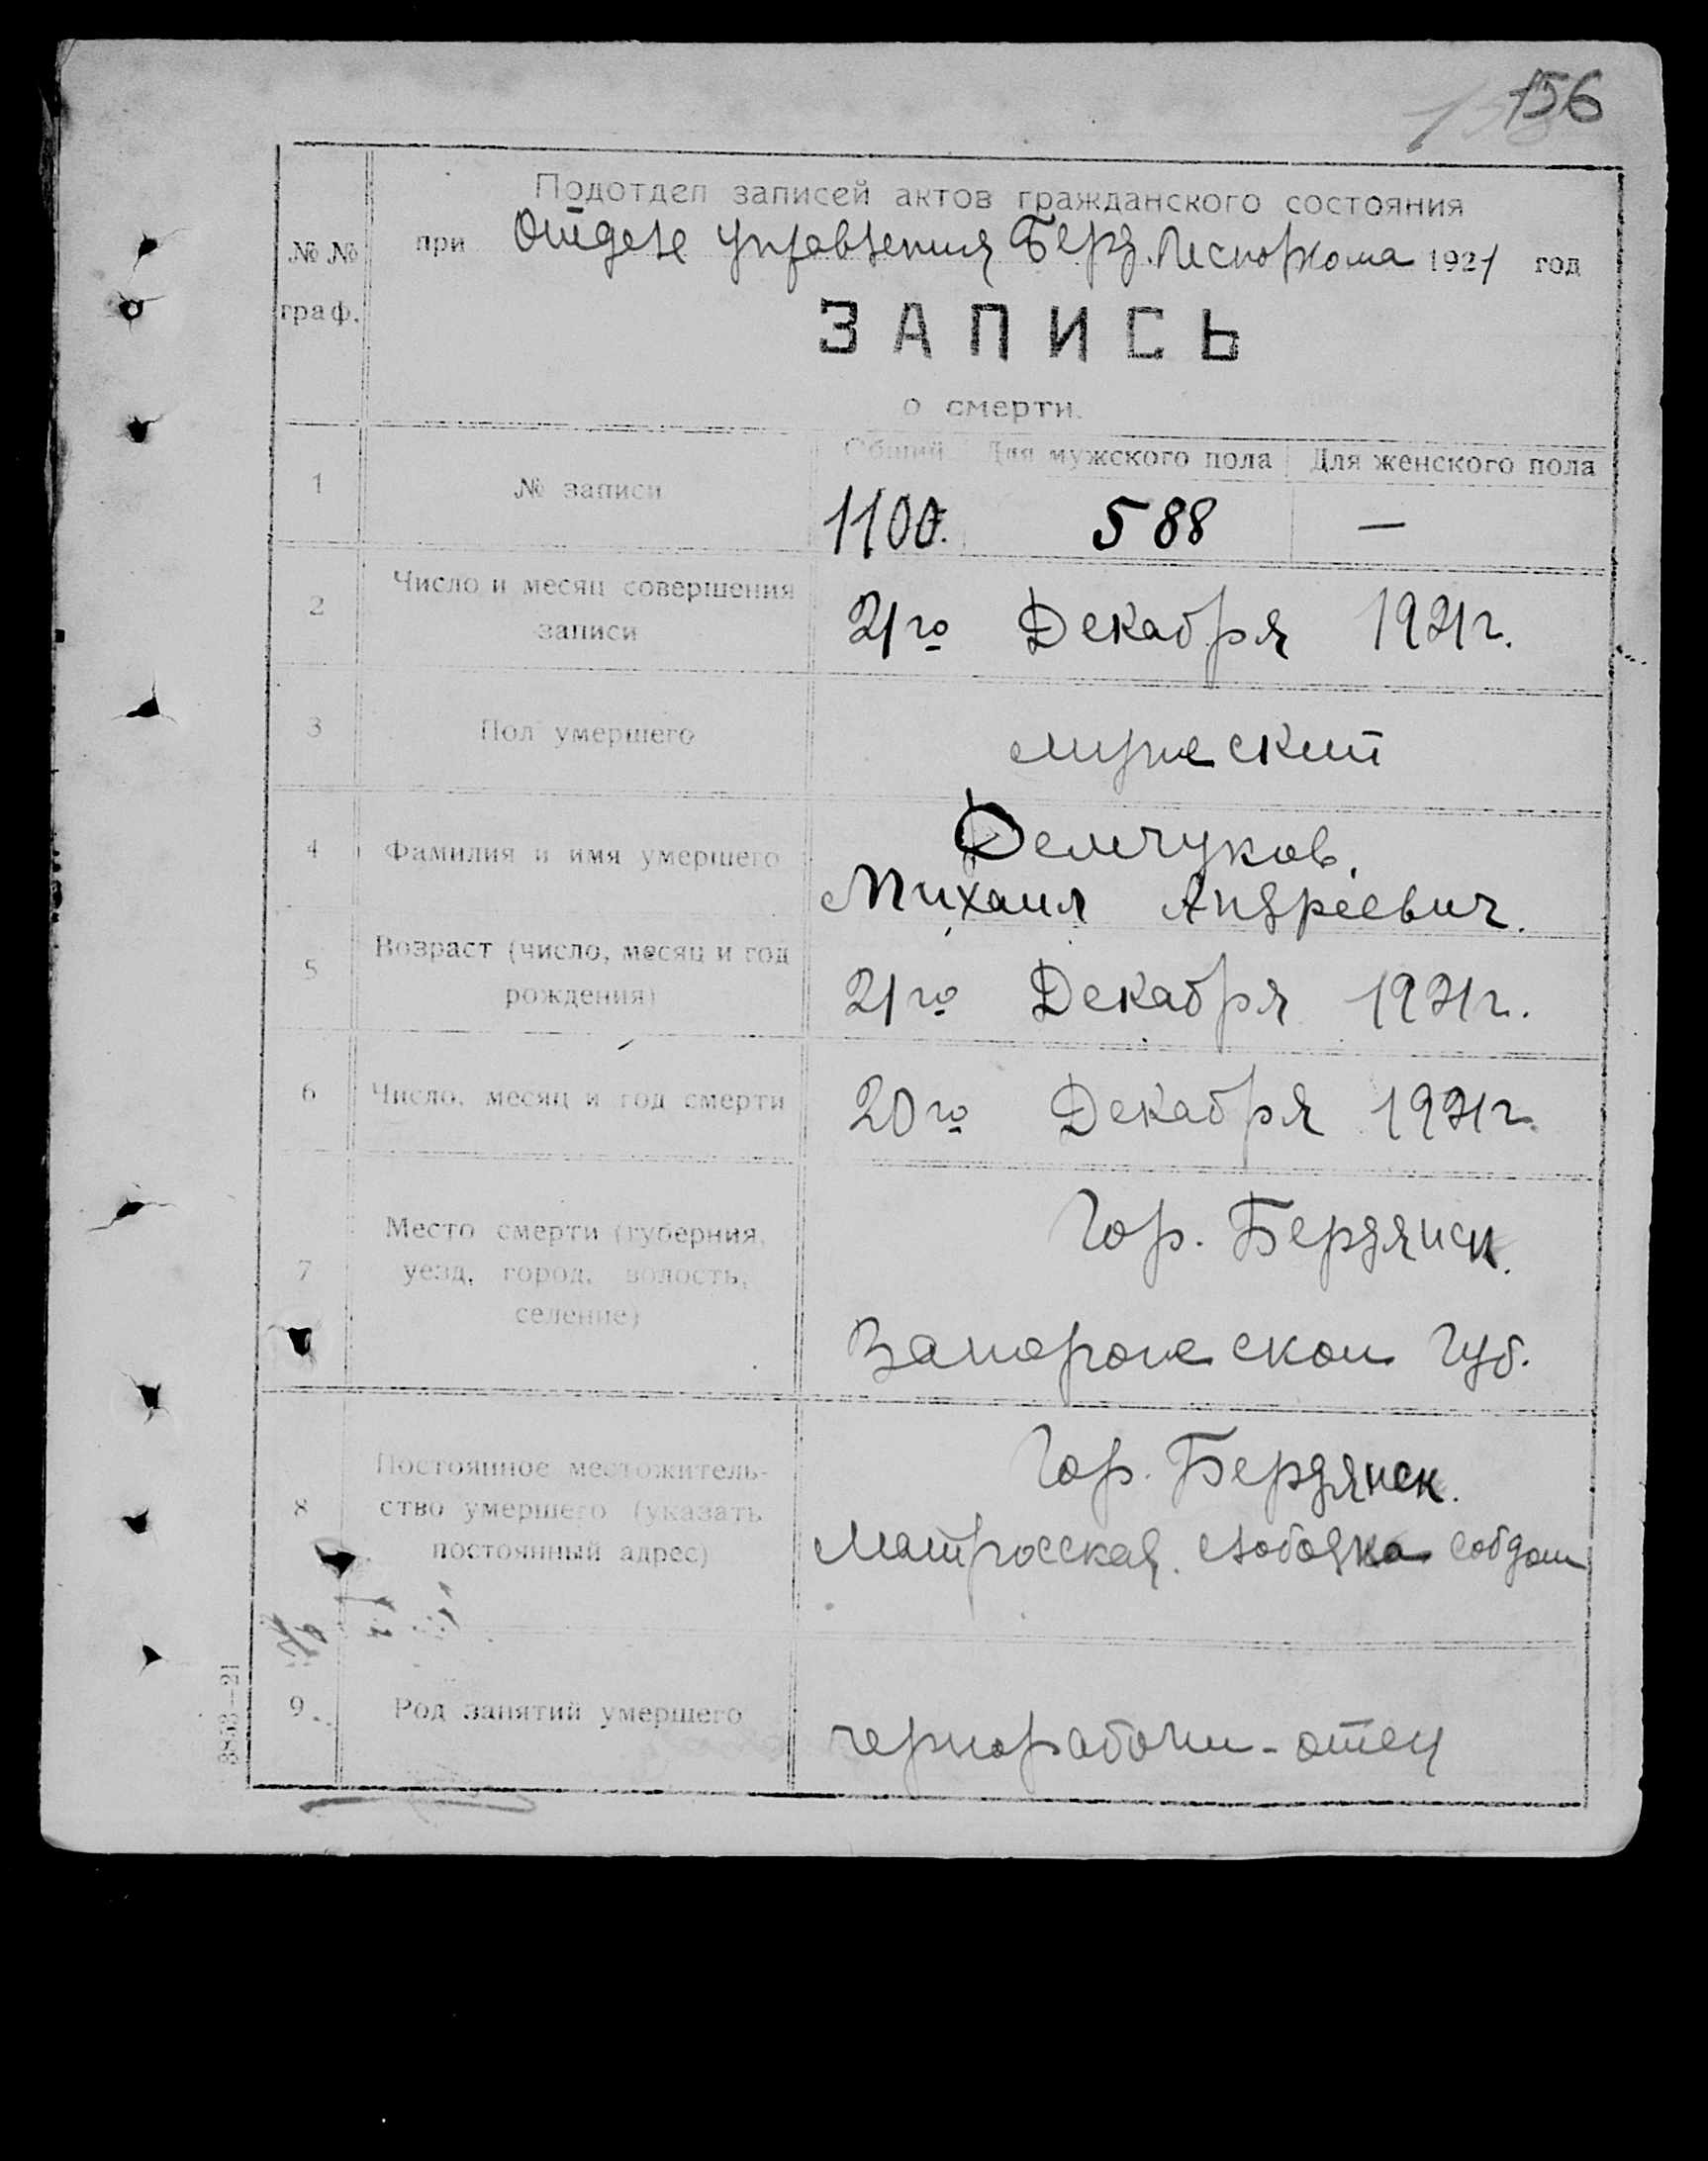 156
Подотдел записей актов гражданского состояния
№ № граф.
при Отделе Управления Берд. Исполкома 1921 год
ЗАПИСЬ
о смерти.
Общий Для мужского пола Для женского пола
1 № записи 1100. 588 —
2 Число и месяц совершения записи 21го Декабря 1921г.
3 Пол умершего мужеский
4 Фамилия и имя умершего Демчуков,
Михаил Андреевич.
5 Возраст (число, месяц и год рождения) 21го Декабря 1921г.
6 Число, месяц и год смерти 20го Декабря 1921г.
7 Место смерти (губерния, уезд, город, волость, селение) Гор. Бердянск.
Запорожеской Губ.
8 Постоянное местожительство умершего (указать постоянный адрес) Гор. Бердянск.
Матросская слободка соб дом
9 Род занятий умершего чернорабочи - отец
3853—21